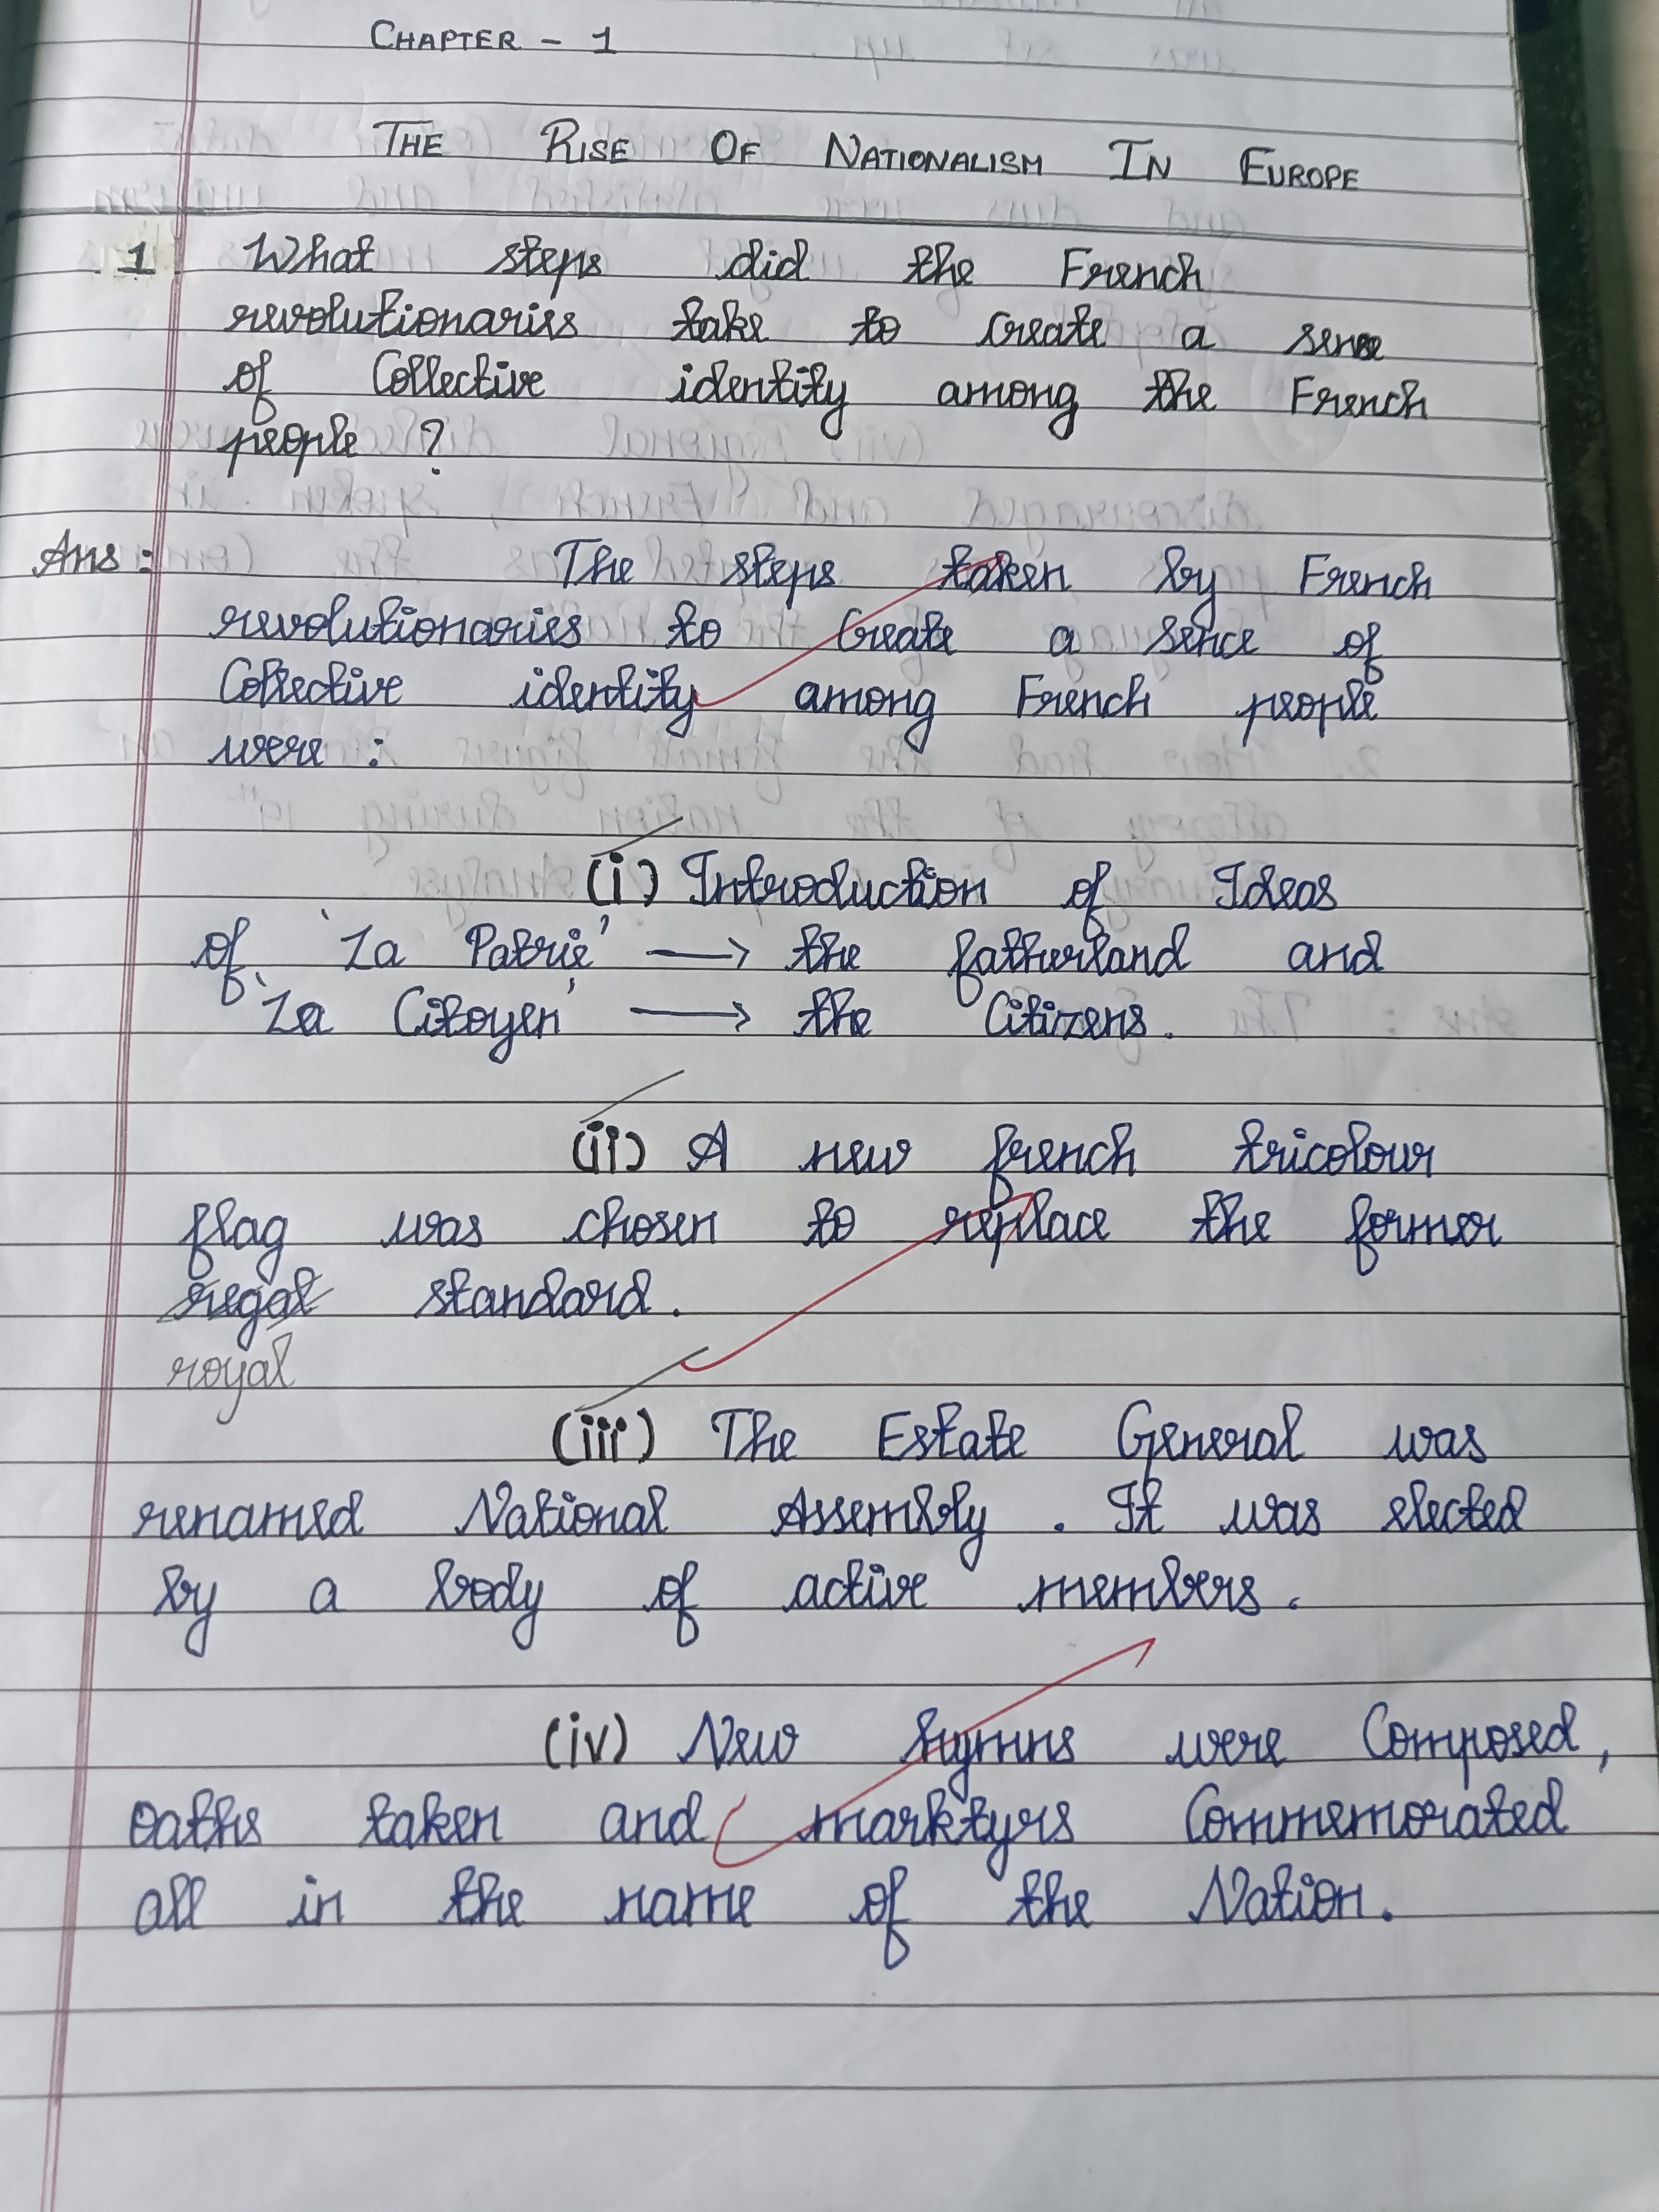 CHAPTER - 1
THE RISE OF NATIONALISM IN EUROPE
1 What steps did the French
revolutionaries take to create a sense
of Collective identity among the French
people ?
Ans : The steps taken by French
revolutionaries to Create a sence of
Collective identity among French people
were :
(i) Introduction of Ideas
of 'La Patrie' → the fatherland and
'La Citoyen' → the Citizens.
(ii) A new french tricolour
flag was chosen to replace the former
regal standard.
royal
(iii) The Estate General was
renamed National Assembly . It was elected
by a body of active members.
(iv) New hymns were Composed,
oaths taken and marktyrs Commemorated
all in the name of the Nation.